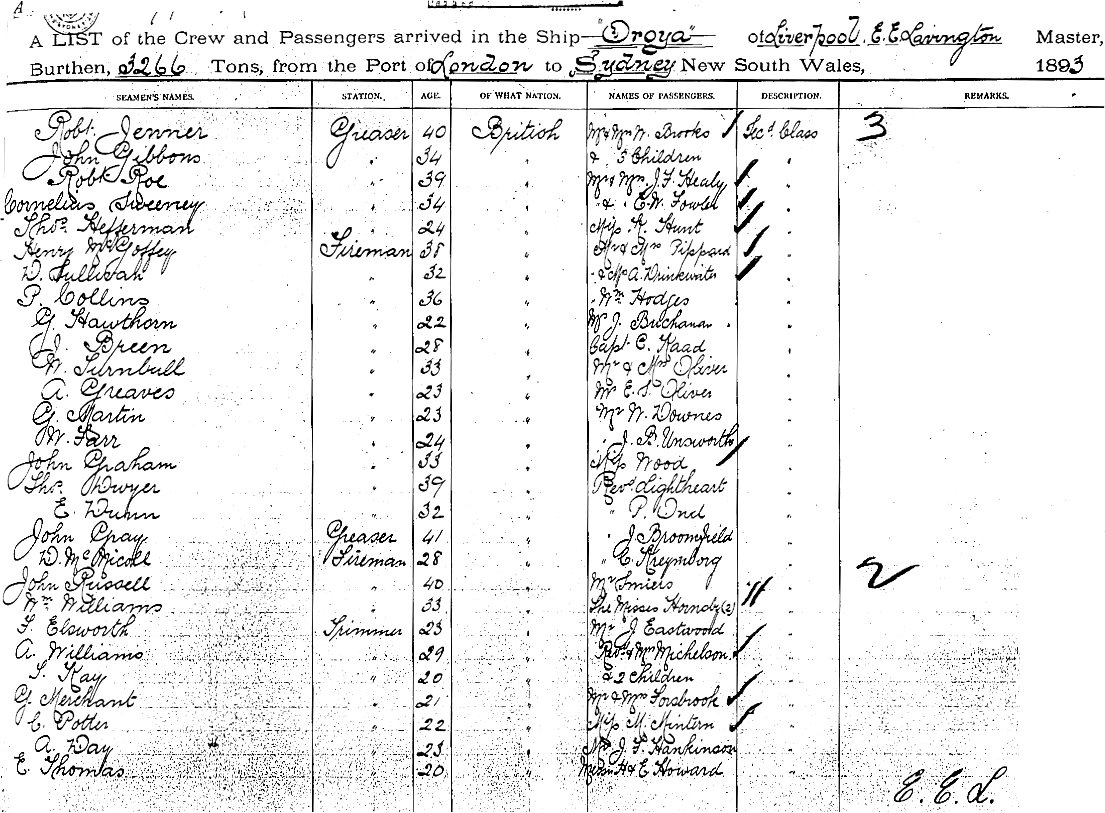 A LIST of the Crew and Passengers arrived in the Ship "Oroya" of Liverpool. E. E. Lavington Master,
Burthen, 3266 Tons, from the Port of London to Sydney New South Wales, 1893
SEAMEN'S NAMES. STATION. AGE. OF WHAT NATION. NAMES OF PASSENGERS. DESCRIPTION. REMARKS.
Robt. Jenner Greaser 40 British Mr & Mrs W. Brooks Secd. Class 3
John Gibbons " 34 " & 5 Children "
Robt Roe " 39 " Mr & Mrs. J. F. Healy "
Cornelius Sweeney " 34 " " & " E. W. Fowler "
Thos. Hefferman " 24 " Miss K. Hunt "
Henry McGoffey Fireman 38 " Mr & Mrs Pippard "
D. Sullivan " 32 " " & Mrs A. Drinkwater "
P. Collins " 36 " " Wm Hodges "
G. Hawthorn " 22 " Mr J. Buchanan "
J. Breen " 28 " Capt. C. Kaad "
W. Turnbull " 33 " Mr & Mrs Oliver "
A. Greaves " 23 " Mr E. S. Oliver "
G. Martin " 23 " Mr W. Downes "
W. Farr " 24 " " J. B. Unsworth "
John Graham " 33 " Miss Wood "
Thos. Dwyer " 39 " Revd. Lightheart "
E. Dunn " 32 " " P. Ond "
John Gray Greaser 41 " " J. Broomfield "
D. McNicoll Fireman 28 " " C. Kreymborg "
John Russell " 40 " Mr Smiers " 2
Wm Williams " 33 " The Misses Hornby (2) "
T. Elsworth Trimmer 23 " Mr J Eastwood "
A. Williams " 29 " Revd. & Mrs Michelson "
T. Kay " 20 " & 2 Children "
G. Merchant " 21 " Mr & Mrs Forsbrook "
C. Potter " 22 " Miss M. Mintern "
A. Day " 23 " Mr J. F. Hankinson "
E. Thomas " 20 " H & E Howard "
E. E. L.